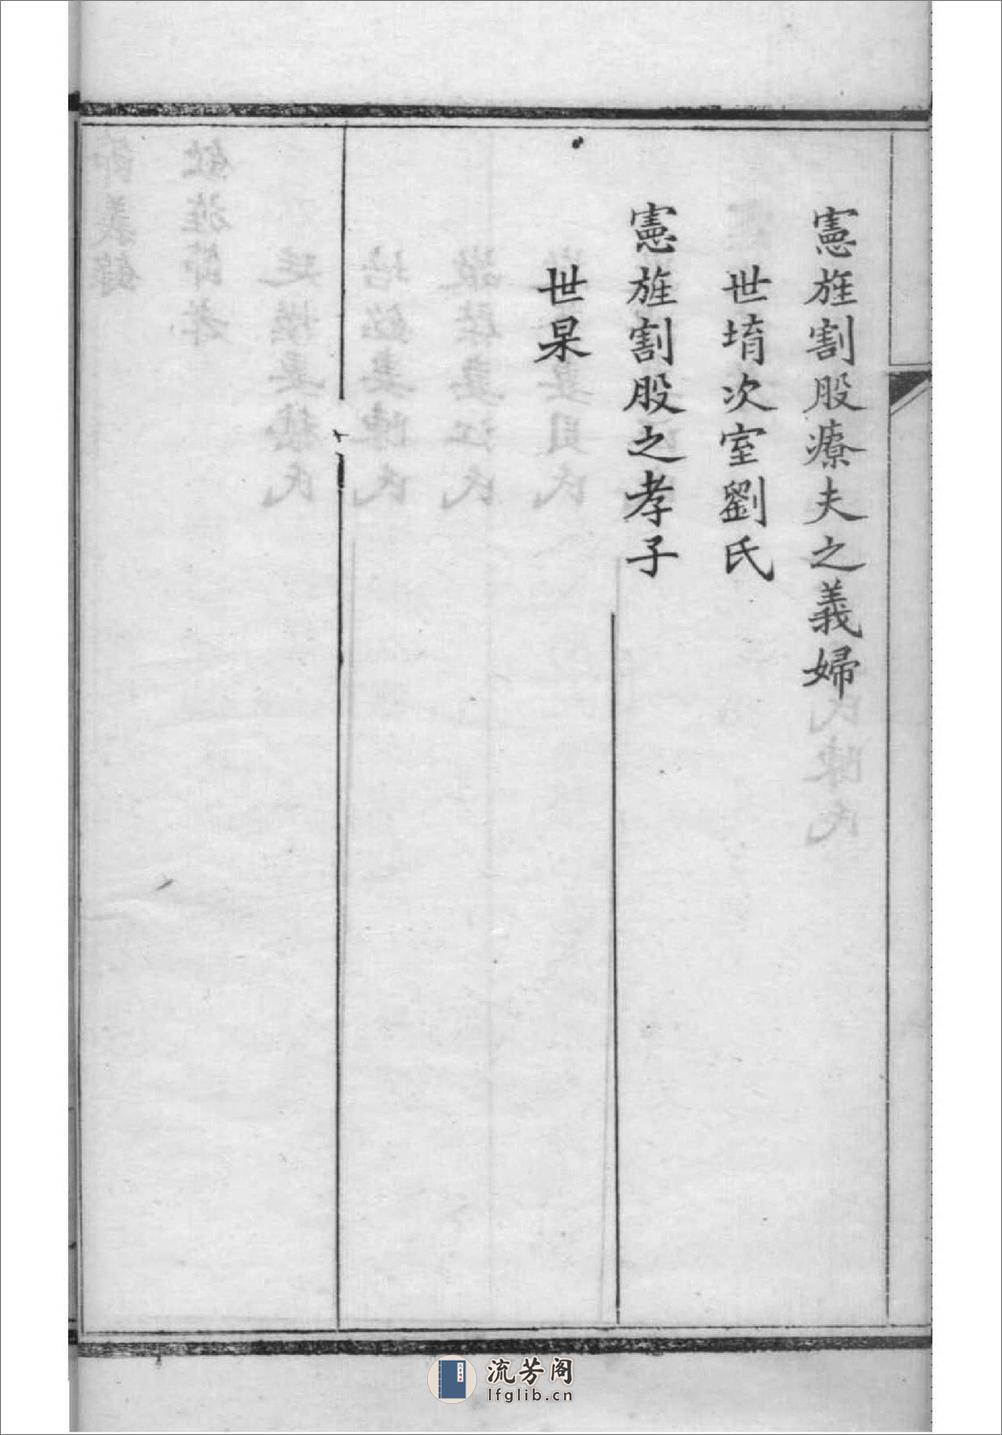 憲旌割股療夫之義婦
世堉次室劉氏
憲旌割股之孝子
世杲
流芳阁
lfglib.cn